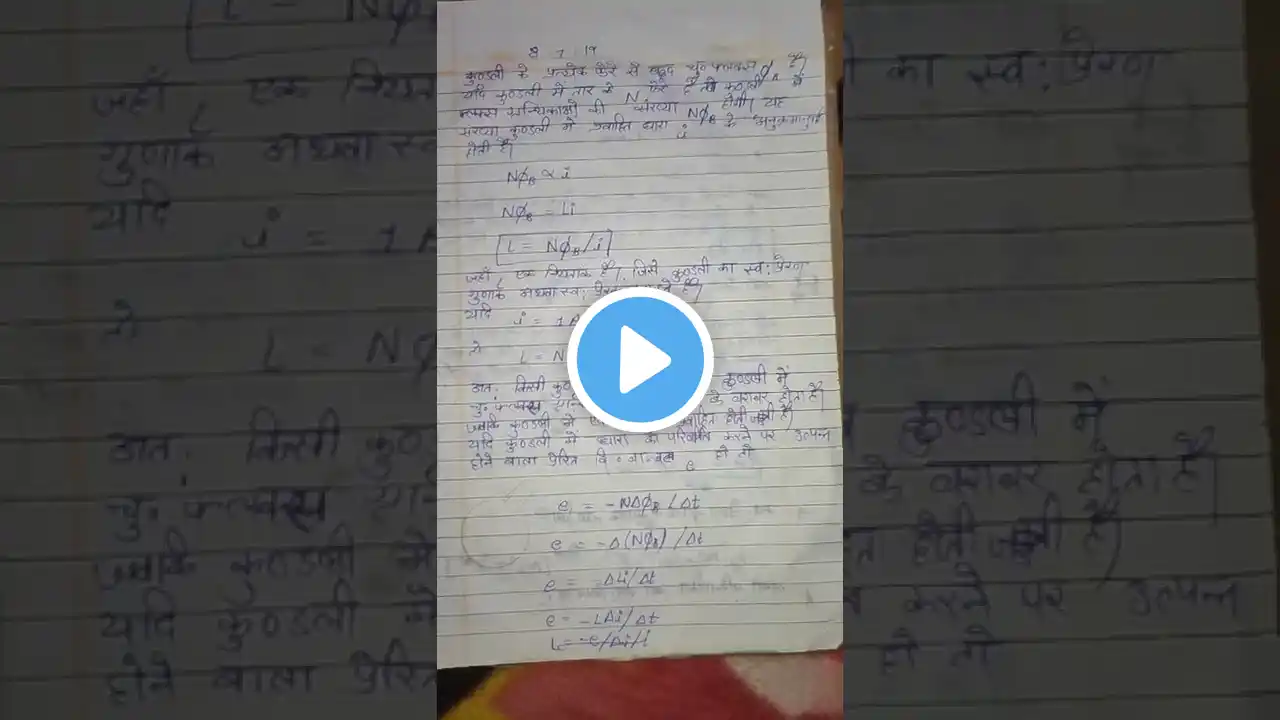 8 7 19
कुण्डली के प्रत्येक फेरे से बद्ध चु० फ्लक्स ϕB है।
यदि कुण्डली में तार के N फेरे हैं तो कुण्डली में
फ्लक्स ग्रन्थिकाओं की संख्या NϕB होगी। यह
संख्या कुण्डली में प्रवाहित धारा i के अनुक्रमानुपाती
होती है।
NϕB ∝ i
NϕB = Li
[L = NϕB/i]
जहाँ L एक नियतांक है। जिसे कुण्डली का स्व: प्रेरण
गुणांक अथवा स्व: है।
यदि i = 1A
तो L = N
अत: किसी कुण्डली में
चु० फ्लक्स के बराबर होता है।
जबकि कुण्डली में प्रवाहित होती है।
यदि कुण्डली में धारा को परिवर्तित करने पर उत्पन्न
होने वाला प्रेरित वि० वा० बल e हो तो
e = -NΔϕB / Δt
e = -Δ(NϕB) / Δt
e = -ΔLi/Δt
e = -LΔi/Δt
L = -e/Δi/